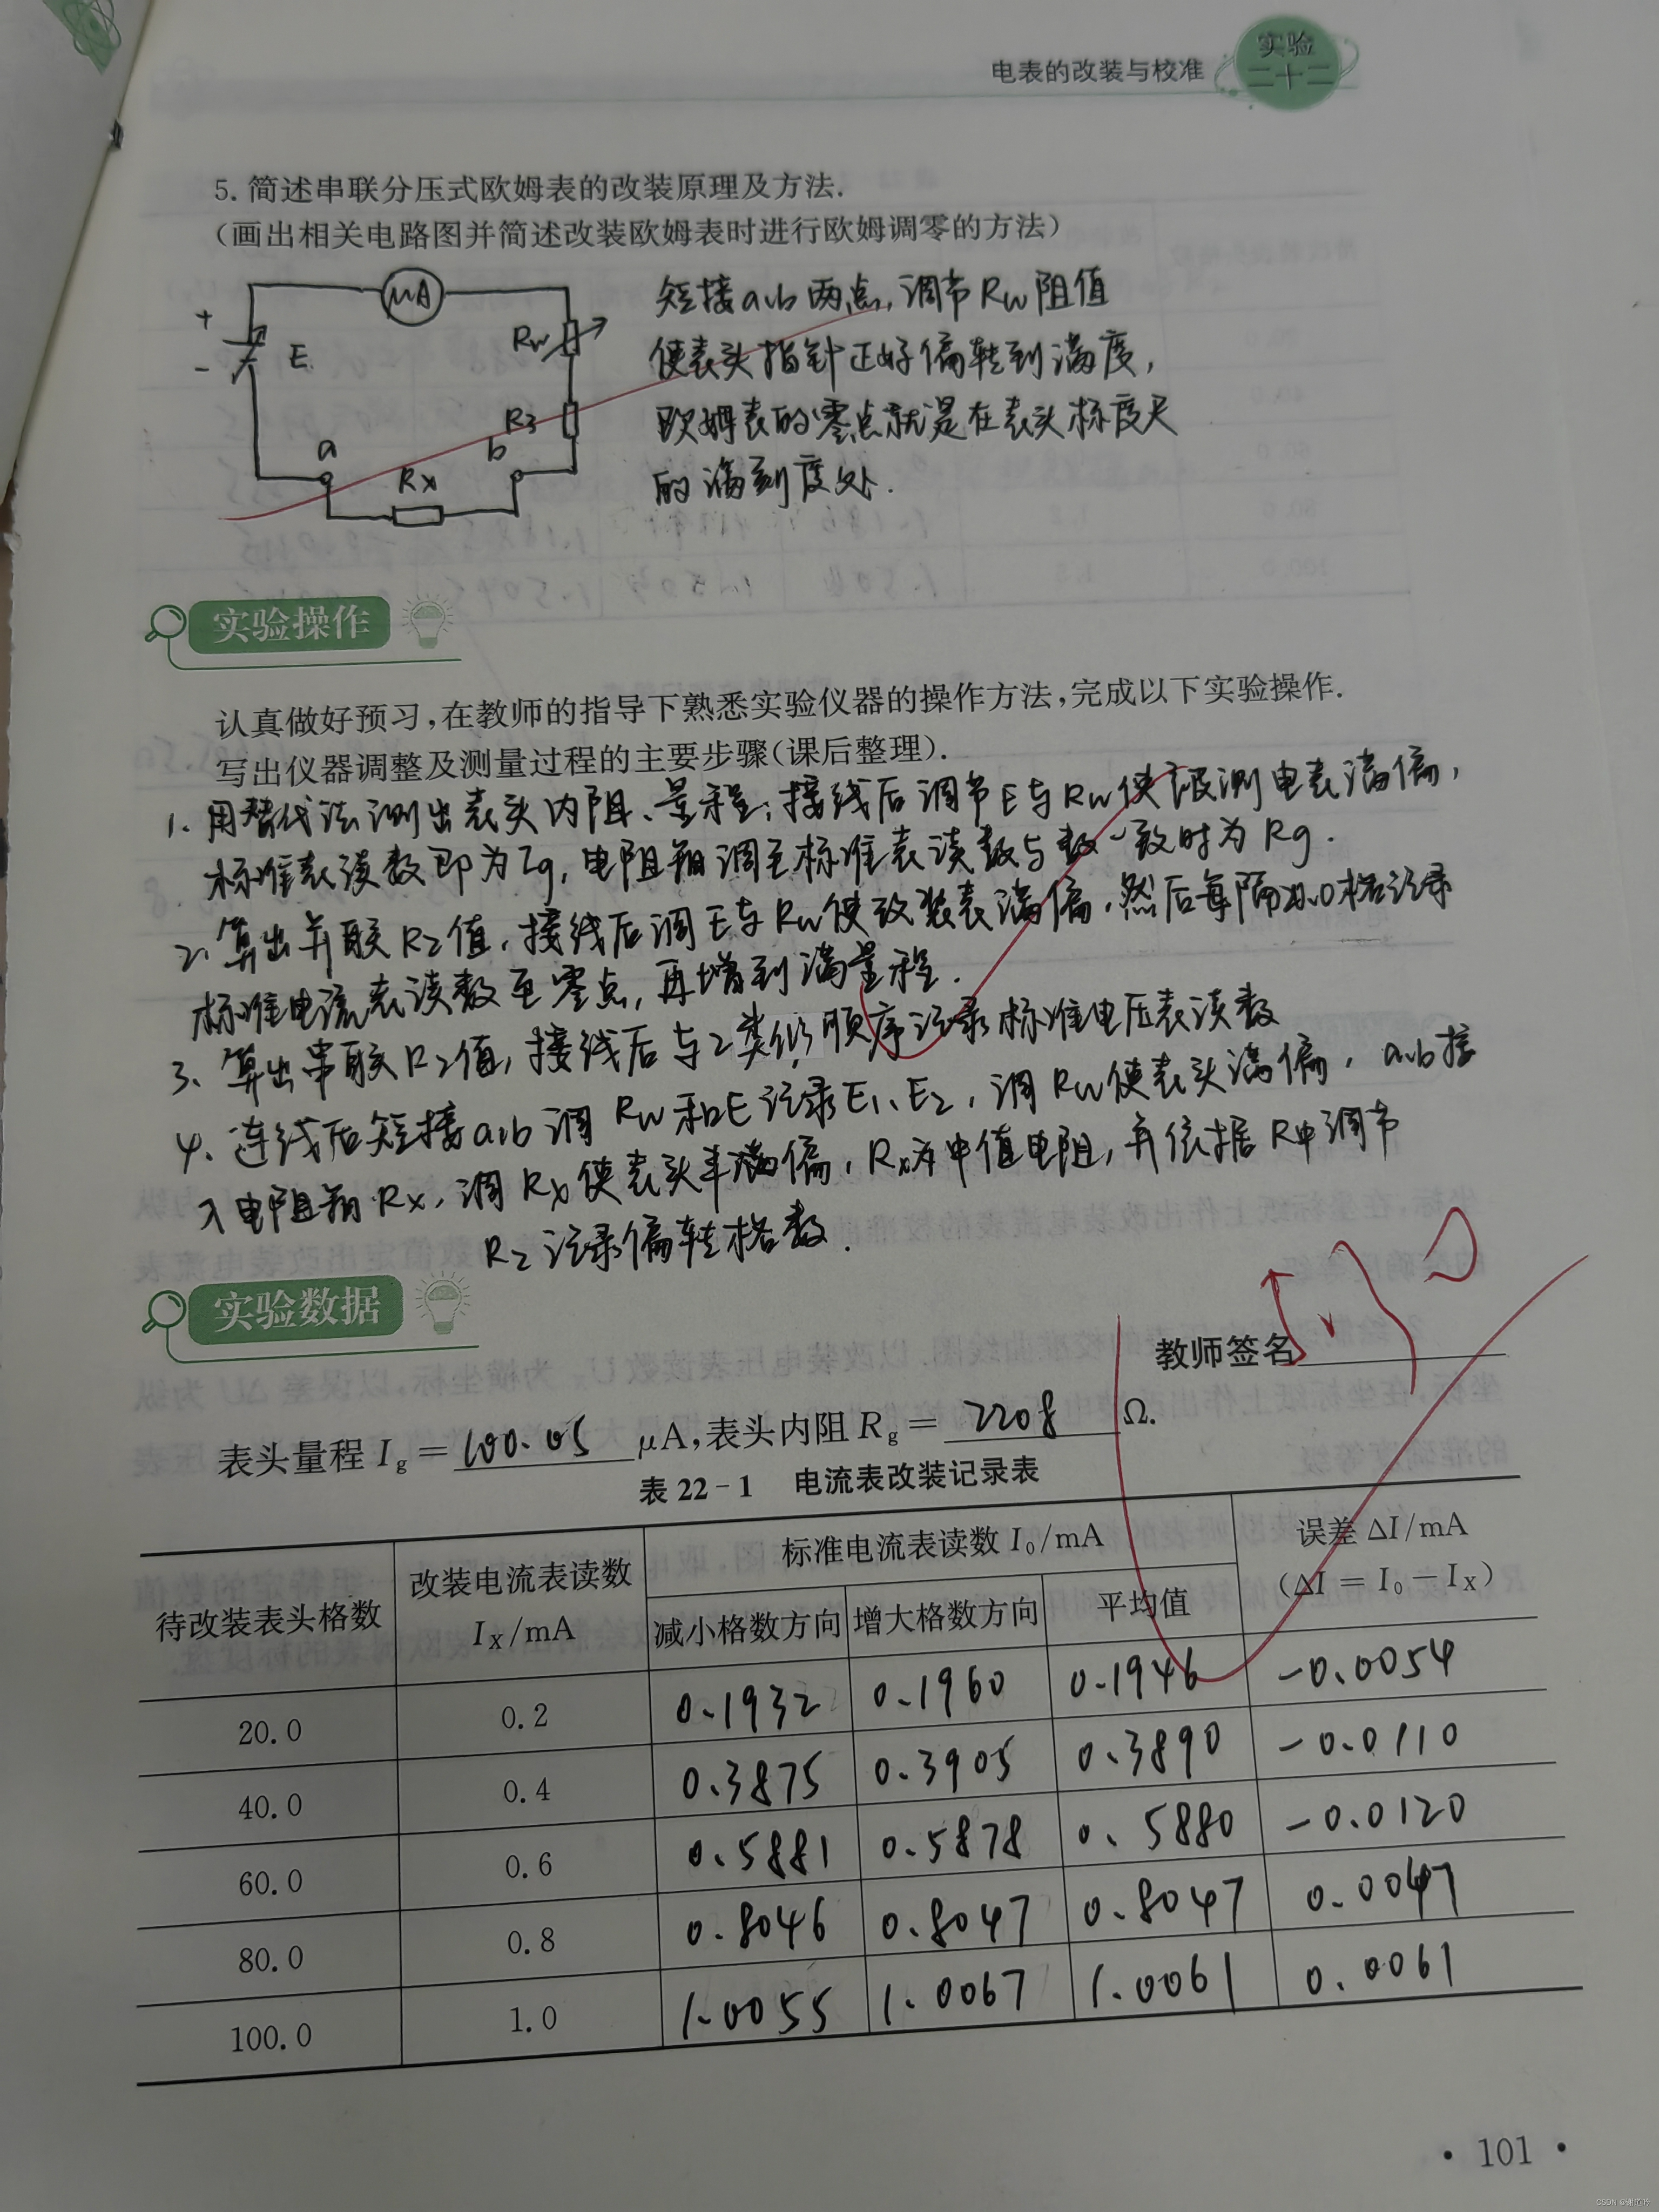 电表的改装与校准
实验
二十二
5. 简述串联分压式欧姆表的改装原理及方法.
(画出相关电路图并简述改装欧姆表时进行欧姆调零的方法)
μA
+
-
E
Rw
R3
a
b
Rx
短接a、b两点,调节Rw阻值
使表头指针正好偏转到满度,
欧姆表的零点就是在表头标度尺
的满刻度处.
实验操作
认真做好预习,在教师的指导下熟悉实验仪器的操作方法,完成以下实验操作.
写出仪器调整及测量过程的主要步骤(课后整理).
1、用替代法测出表头内阻、量程:接线后调节E与Rw使被测电表满偏,
标准表读数即为Ig,电阻箱调至标准表读数与数一致时为Rg.
2、算出并联R2值,接线后调E与Rw使改装表满偏,然后每隔20.0格记录
标准电流表读数至零点,再增到满量程.
3、算出串联R2值,接线后与2类似顺序记录标准电压表读数
4、连线后短接a、b调Rw和E记录E1、E2,调Rw使表头满偏,a、b接
入电阻箱Rx,调Rx使表头半满偏,Rx为中值电阻,并依据R中调节
R2记录偏转格数.
实验数据
教师签名
表头量程 Ig = 100.05 μA,表头内阻 Rg = 2208 Ω.
表 22-1 电流表改装记录表
待改装表头格数 改装电流表读数 IX/mA 标准电流表读数 I0/mA 误差 ΔI/mA (ΔI = I0 - IX)
减小格数方向 增大格数方向 平均值
20.0 0.2 0.1932 0.1960 0.1946 -0.0054
40.0 0.4 0.3875 0.3905 0.3890 -0.0110
60.0 0.6 0.5881 0.5878 0.5880 -0.0120
80.0 0.8 0.8046 0.8047 0.8047 0.0047
100.0 1.0 1.0055 1.0067 1.0061 0.0061
· 101 ·